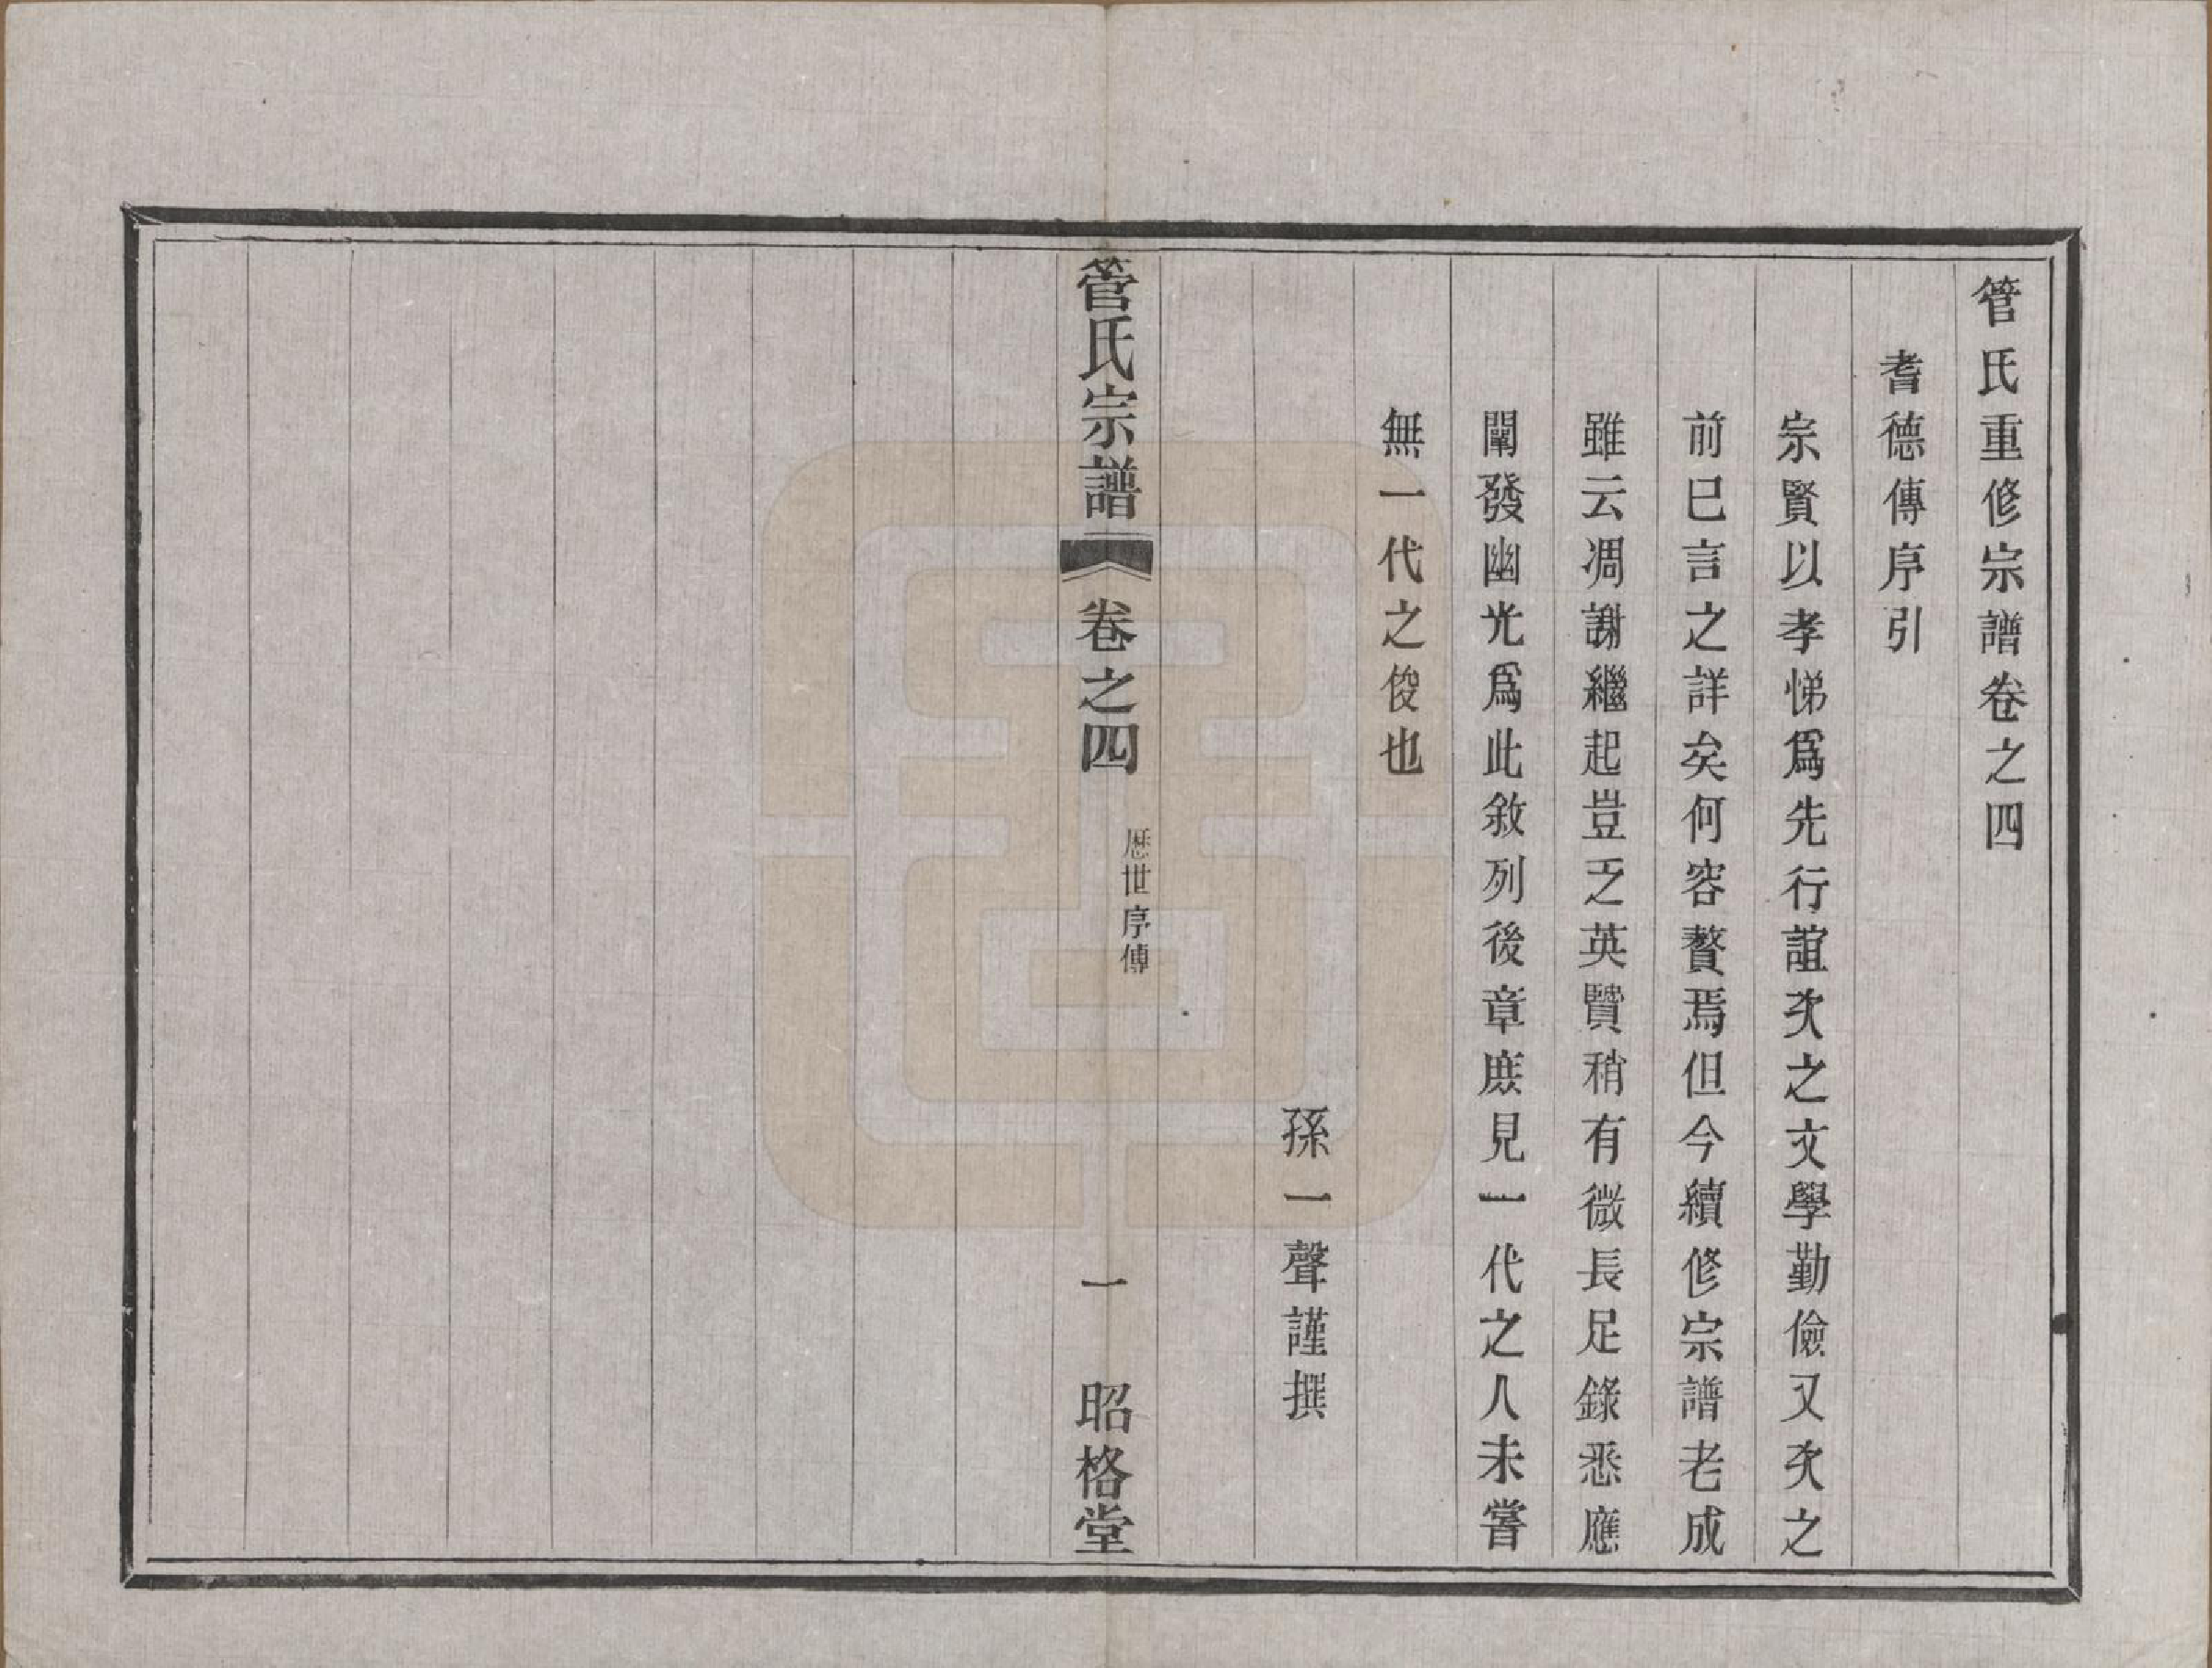 管氏重修宗譜卷之四
耆德傳序引
宗賢以孝悌爲先行誼次之文學勤儉又次之
前已言之詳矣何容贅焉但今續修宗譜老成
雖云凋謝繼起豈乏英賢稍有微長足錄悉應
闡發幽光爲此敘列後章庶見一代之人未嘗
無一代之俊也
孫一聲謹撰
管氏宗譜
卷之四
歷世序傳
一
昭格堂